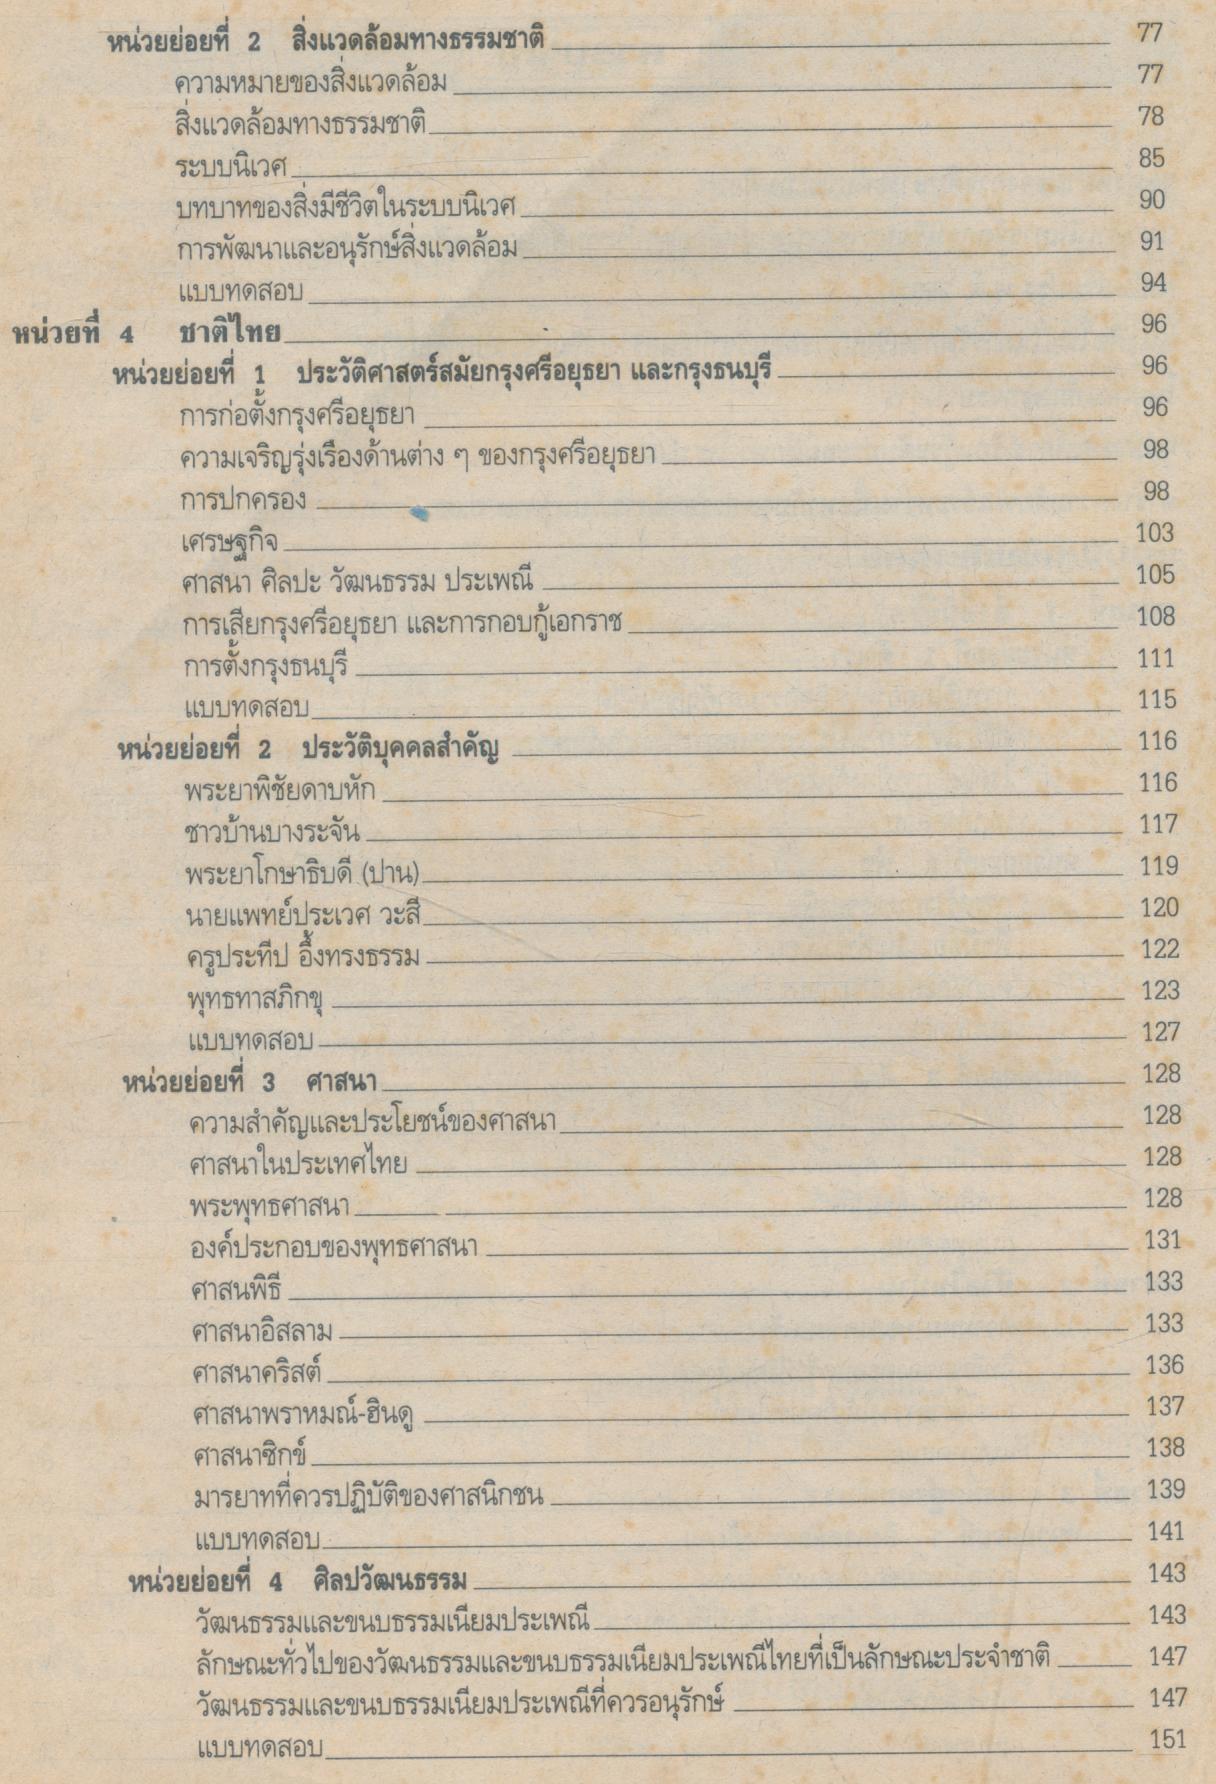 หน่วยย่อยที่ 2 สิ่งแวดล้อมทางธรรมชาติ 77
ความหมายของสิ่งแวดล้อม 77
สิ่งแวดล้อมทางธรรมชาติ 78
ระบบนิเวศ 85
บทบาทของสิ่งมีชีวิตในระบบนิเวศ 90
การพัฒนาและอนุรักษ์สิ่งแวดล้อม 91
แบบทดสอบ 94
หน่วยที่ 4 ชาติไทย 96
หน่วยย่อยที่ 1 ประวัติศาสตร์สมัยกรุงศรีอยุธยา และกรุงธนบุรี 96
การก่อตั้งกรุงศรีอยุธยา 96
ความเจริญรุ่งเรืองด้านต่าง ๆ ของกรุงศรีอยุธยา 98
การปกครอง 98
เศรษฐกิจ 103
ศาสนา ศิลปะ วัฒนธรรม ประเพณี 105
การเสียกรุงศรีอยุธยา และการกอบกู้เอกราช 108
การตั้งกรุงธนบุรี 111
แบบทดสอบ 115
หน่วยย่อยที่ 2 ประวัติบุคคลสำคัญ 116
พระยาพิชัยดาบหัก 116
ชาวบ้านบางระจัน 117
พระยาโกษาธิบดี (ปาน) 119
นายแพทย์ประเวศ วะสี 120
ครูประทีป อึ้งทรงธรรม 122
พุทธทาสภิกขุ 123
แบบทดสอบ 127
หน่วยย่อยที่ 3 ศาสนา 128
ความสำคัญและประโยชน์ของศาสนา 128
ศาสนาในประเทศไทย 128
พระพุทธศาสนา 128
องค์ประกอบของพุทธศาสนา 131
ศาสนพิธี 133
ศาสนาอิสลาม 133
ศาสนาคริสต์ 136
ศาสนาพราหมณ์-ฮินดู 137
ศาสนาซิกข์ 138
มารยาทที่ควรปฏิบัติของศาสนิกชน 139
แบบทดสอบ 141
หน่วยย่อยที่ 4 ศิลปวัฒนธรรม 143
วัฒนธรรมและขนบธรรมเนียมประเพณี 143
ลักษณะทั่วไปของวัฒนธรรมและขนบธรรมเนียมประเพณีไทยที่เป็นลักษณะประจำชาติ 147
วัฒนธรรมและขนบธรรมเนียมประเพณีที่ควรอนุรักษ์ 147
แบบทดสอบ 151